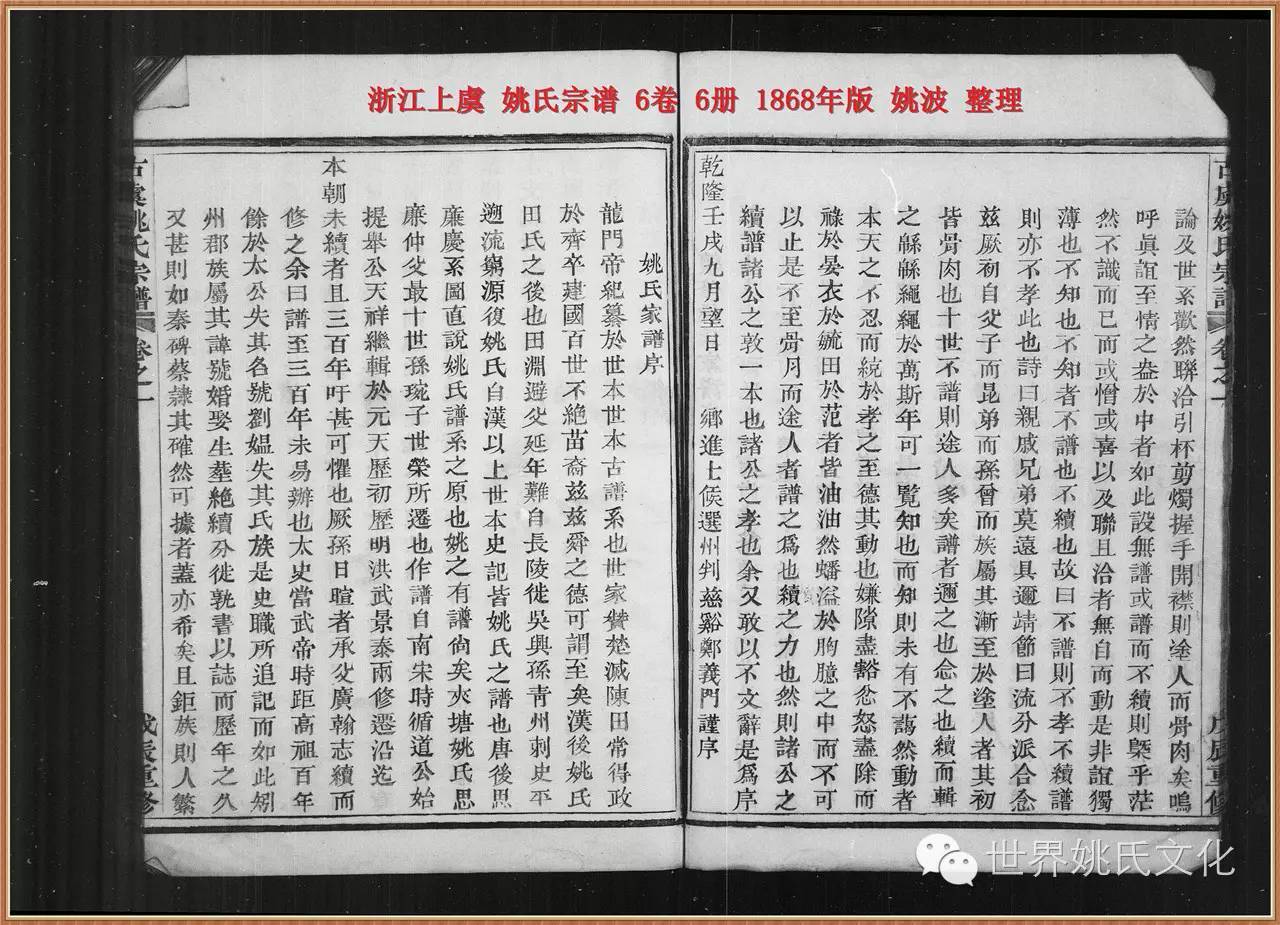 浙江上虞 姚氏宗谱 6卷 6册 1868年版 姚波 整理
論及世系歡然聯洽引杯剪燭握手開襟則塗人而骨肉矣嗚
呼眞誼至情之盎於中者如此設無譜或譜而不續則槩乎茫
然不識而已而或憎或喜以及聯且洽者無自而動是非誼獨
薄也不知也不知者不譜也不續也故曰不譜則不孝不續譜
則亦不孝此也詩曰親戚兄弟莫遠具邇靖節曰流分派合念
茲厥初自父子而昆弟而孫曾而族屬其漸至於塗人者其初
皆骨肉也十世不譜則途人多矣譜者邇之也念之也續而輯
之緜緜繩繩於萬斯年可一覽知也而知則未有不藹然動者
本天之不忍而統於孝之至德其動也嫌隙盡豁忿怒盡除而
祿於晏衣於毓田於范者皆油油然蟠溢於胸臆之中而不可
以止是不至骨月而途人者譜之爲也續之力也然則諸公之
續譜諸公之敦一本也諸公之孝也余又敢以不文辭是爲序
乾隆壬戌九月望日 鄉進士候選州判慈谿鄭義門謹序
古虞姚氏宗譜 卷之一 戊辰重修
姚氏家譜序
龍門帝紀纂於世本世本古譜系也世家贊楚滅陳田常得政
於齊卒建國百世不絶苗裔茲茲舜之德可謂至矣漢後姚氏
田氏之後也田淵避父延年難自長陵徙吳興孫青州刺史平
遡流窮源復姚氏自漢以上世本史記皆姚氏之譜也唐後思
廉慶系圖直說姚氏譜系之原也姚之有譜尙矣夾塘姚氏思
廉仲父最十世孫琬子世榮所遷也作譜自南宋時循道公始
提舉公天祥繼輯於元天歷初歷明洪武景泰兩修遷沿迄
本朝未續者且三百年吁甚可懼也厥孫日暄者承父廣翰志續而
修之余曰譜至三百年未易辦也太史當武帝時距高祖百年
餘於太公失其名號劉媼失其氏族是史職所追記而如此矧
州郡族屬其諱號婚娶生塟絶續分徙孰書以誌而歷年之久
又甚則如秦碑蔡隸其確然可據者蓋亦希矣且鉅族則人繁
古虞姚氏宗譜 卷之一 戊辰重修
世界姚氏文化